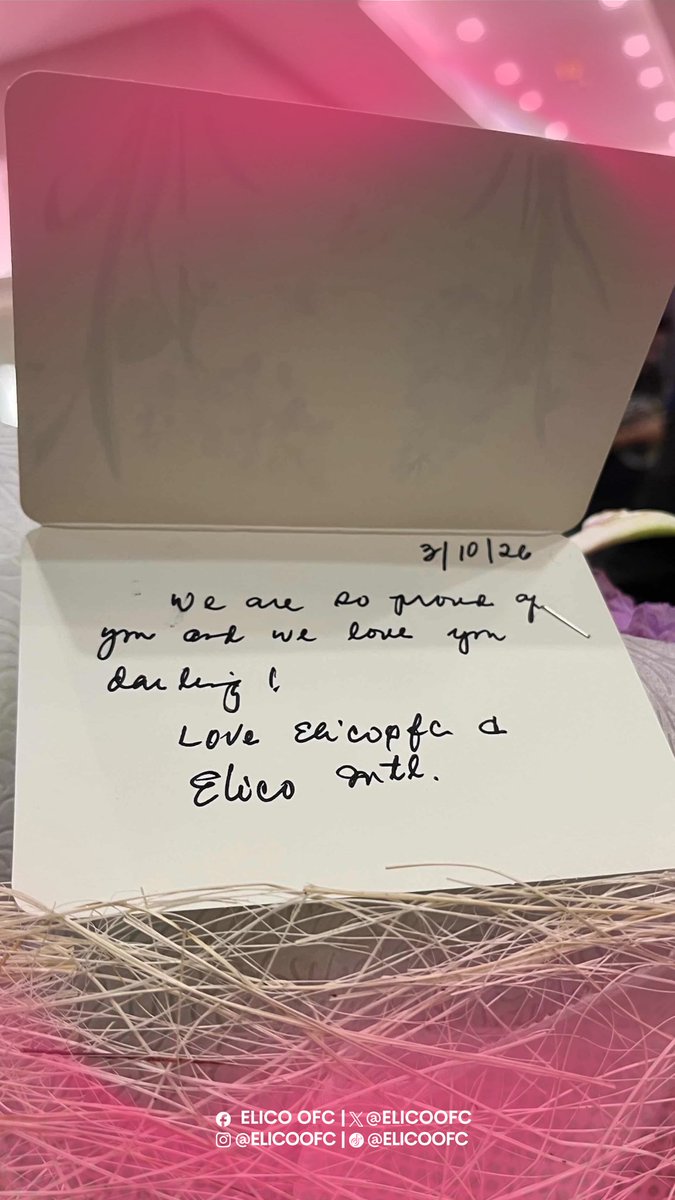 3/10/26
We are so proud of
you and we love you
darling !
Love Elicopfc &
Elico Intl.
ELICO OFC | X @ELICOOFC
@ELICOOFC | @ELICOOFC